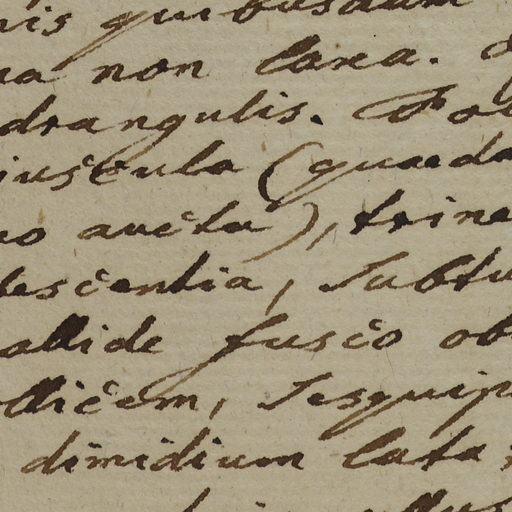 nis quibusdam
na non laxa.
drangulis. Fol
iuscula (quaeda
no aucta), trine
lescentia, subtu
allide fusco ob
llicem, sesquip
dimidium lata